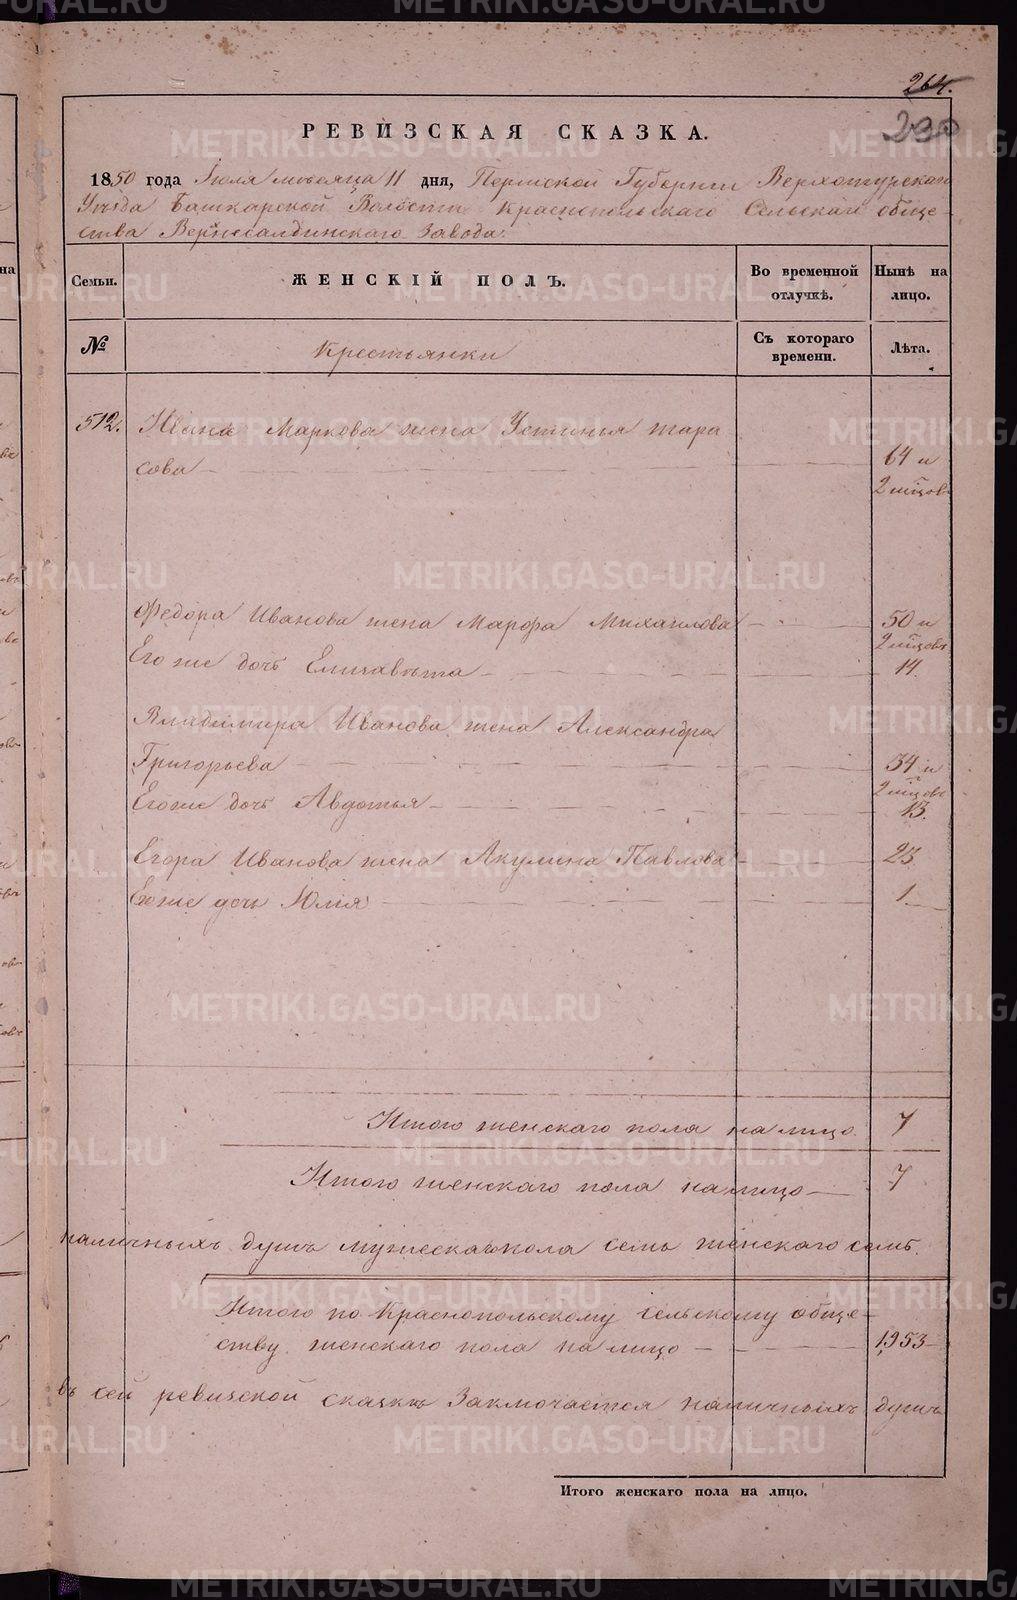 264.
230
РЕВИЗСКАЯ СКАЗКА.
1850 года Іюля мѣсяца 11 дня, Пермской Губерніи Верхотурскаго
Уѣзда Башкарской Волости Краснопольскаго Сельскаго обще-
ства Верхнесалдинскаго Завода.
Семьи. ЖЕНСКІЙ ПОЛЪ. Во временной отлучкѣ. Нынѣ на лицо.
№ Крестьянки Съ котораго времени. Лѣта.
512. Ивана Маркова жена Устинья Тара
сова 64 и
2 мѣсцовъ
Федора Иванова жена Марфа Михаилова 50 и
2 мѣсцовъ
Его же дочь Елизавѣта 14.
Владимира Иванова жена Александра
Григорьева 34 и
2 мѣсцовъ
Его же дочь Авдотья 13.
Егора Иванова жена Акулина Павлова 23
Его же дочь Юлія 1
Итого женскаго пола на лицо. 7
Итого женскаго пола на лицо 7
наличныхъ душъ мужескаго пола семь женскаго семь.
Итого по Краснопольскому сельскому обще-
ству женскаго пола на лицо 1953
въ сей ревизской сказкѣ Заключается наличныхъ душъ
Итого женскаго пола на лицо.
METRIKI.GASO-URAL.RU